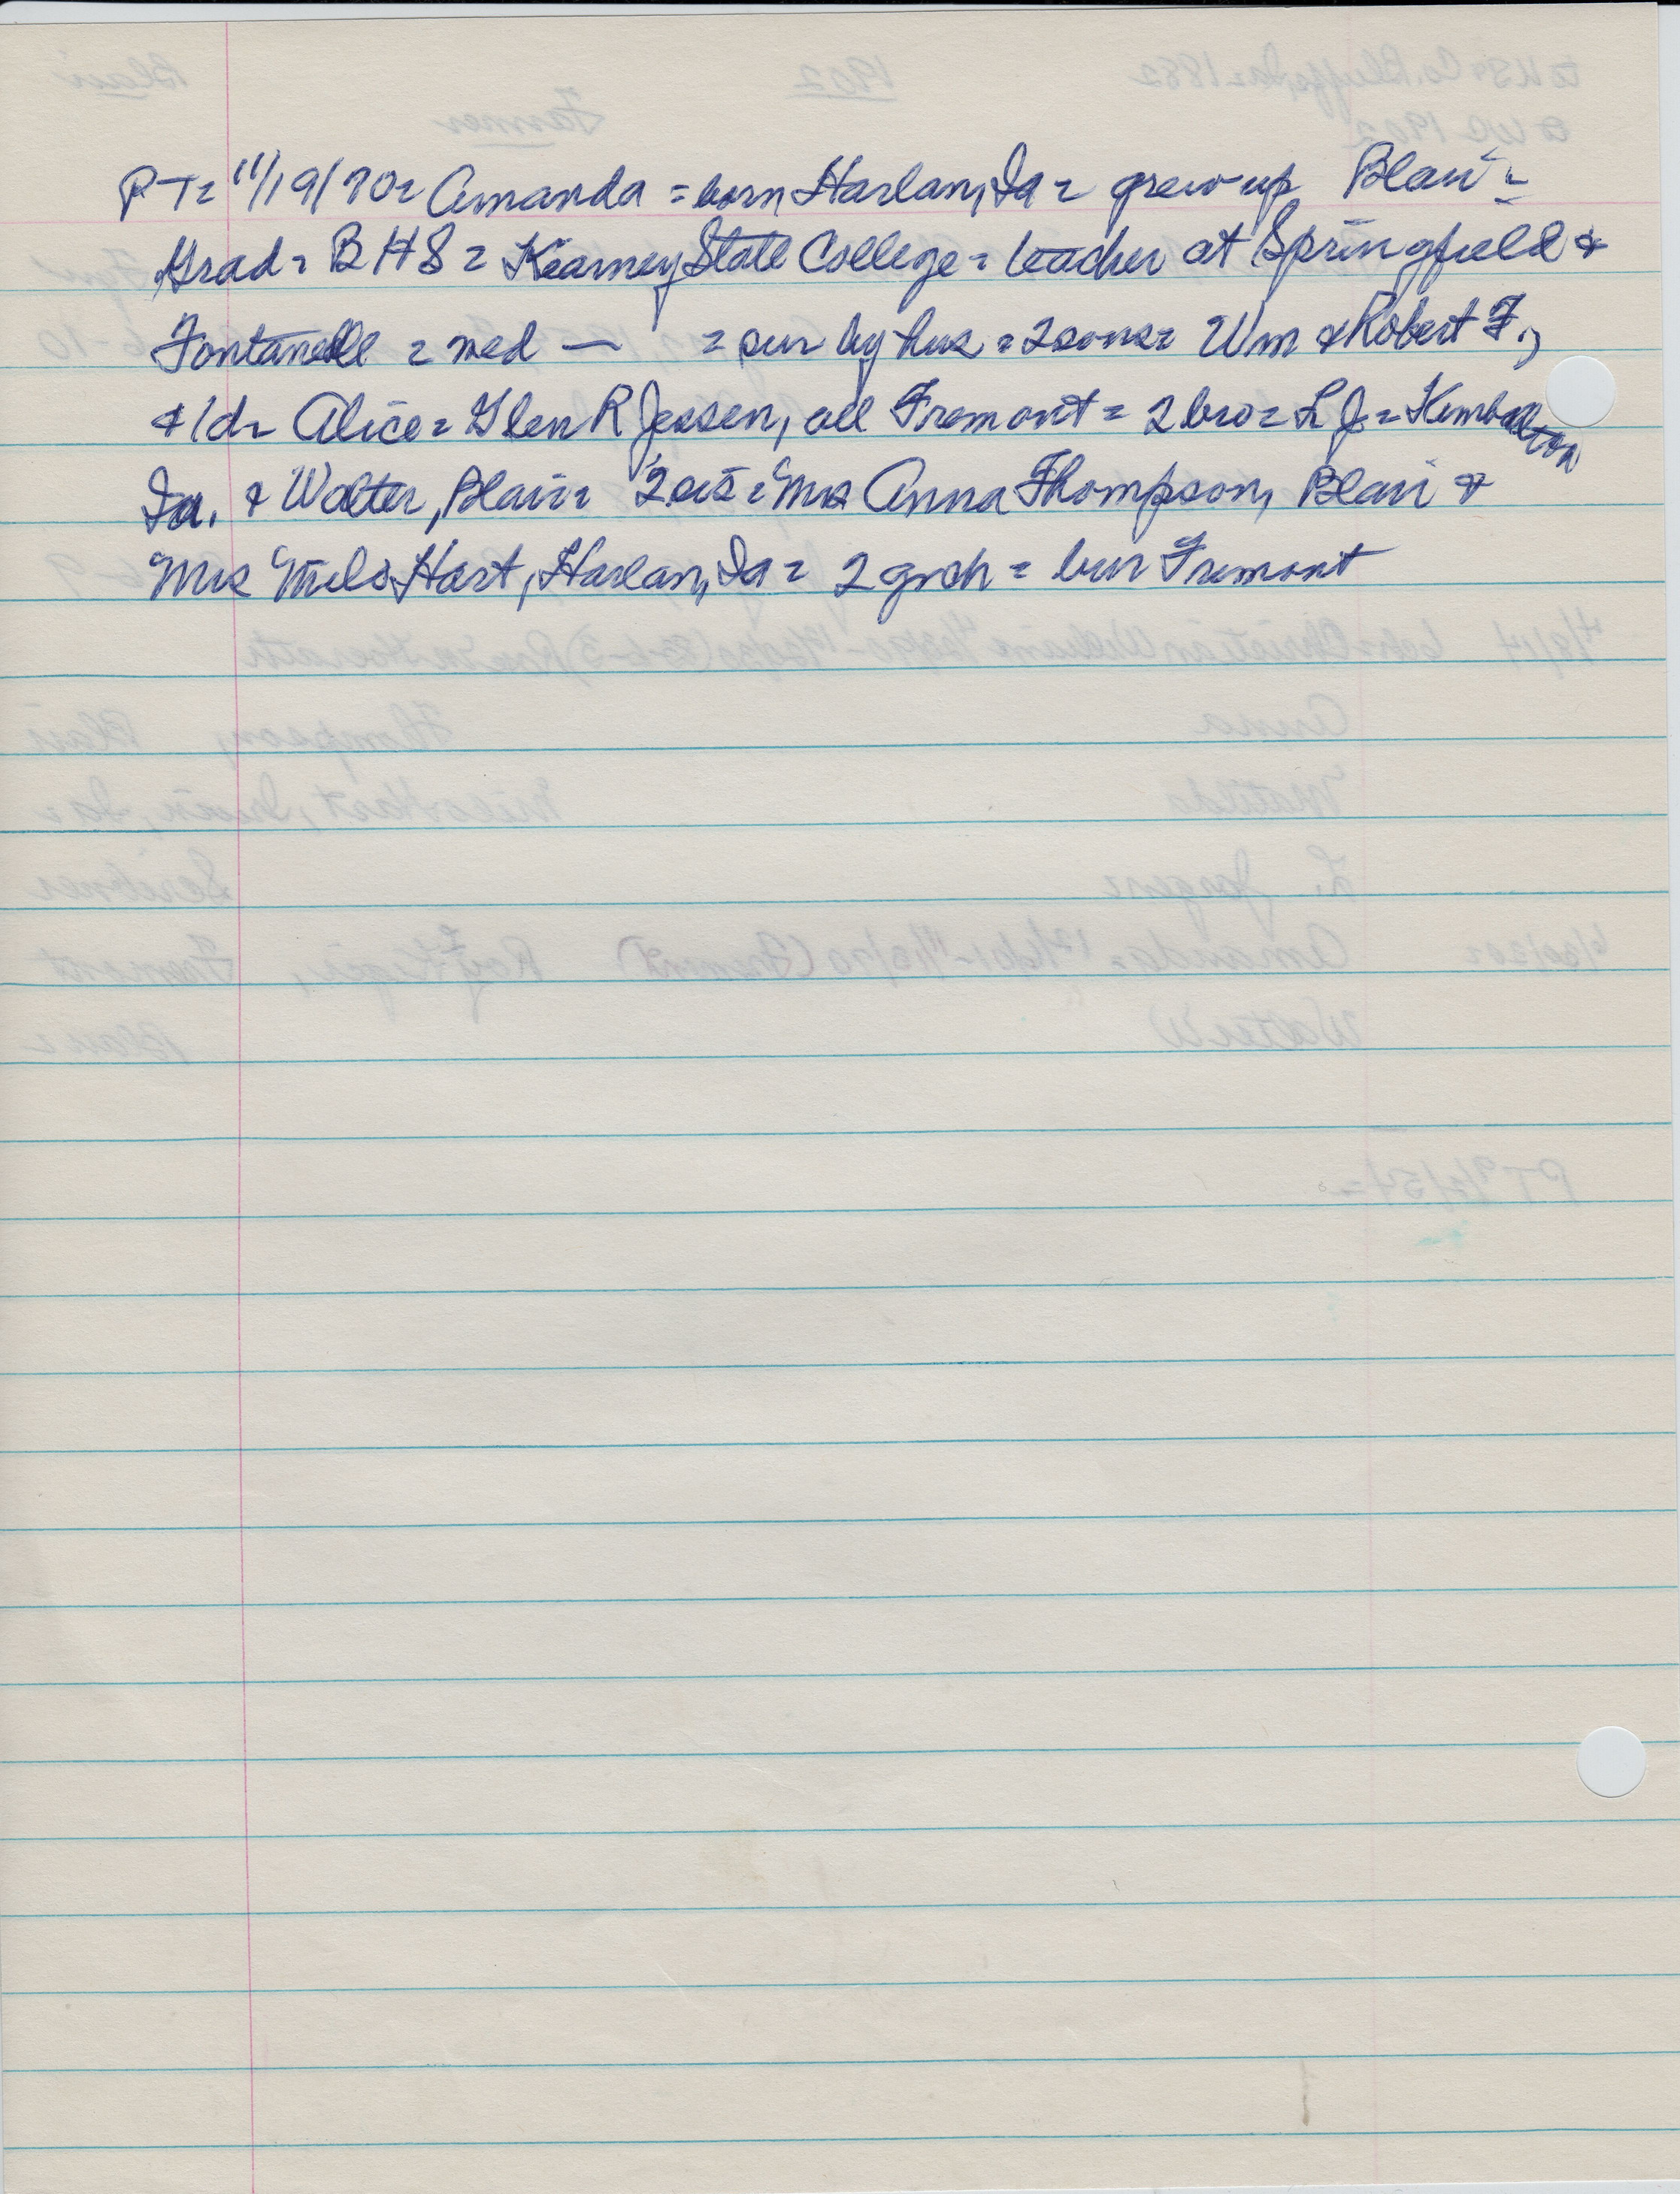 PT= 11/19/70= Amanda = born Harlan, Ia = grew up Blair =
Grad = BHS = Kearney State College = teacher at Springfield &
Fontanelle = med — = sur by hus = 2 sons = Wm & Robert F.,
& 1d= Alice = Glen R Jessen, all Fremont = 2 bro = L J = Kimballton
Ia. & Walter, Blair = 2 sis = Mrs Anna Thompson, Blair &
Mrs Mils Hart, Harlan, Ia = 2 grch = bur Fremont